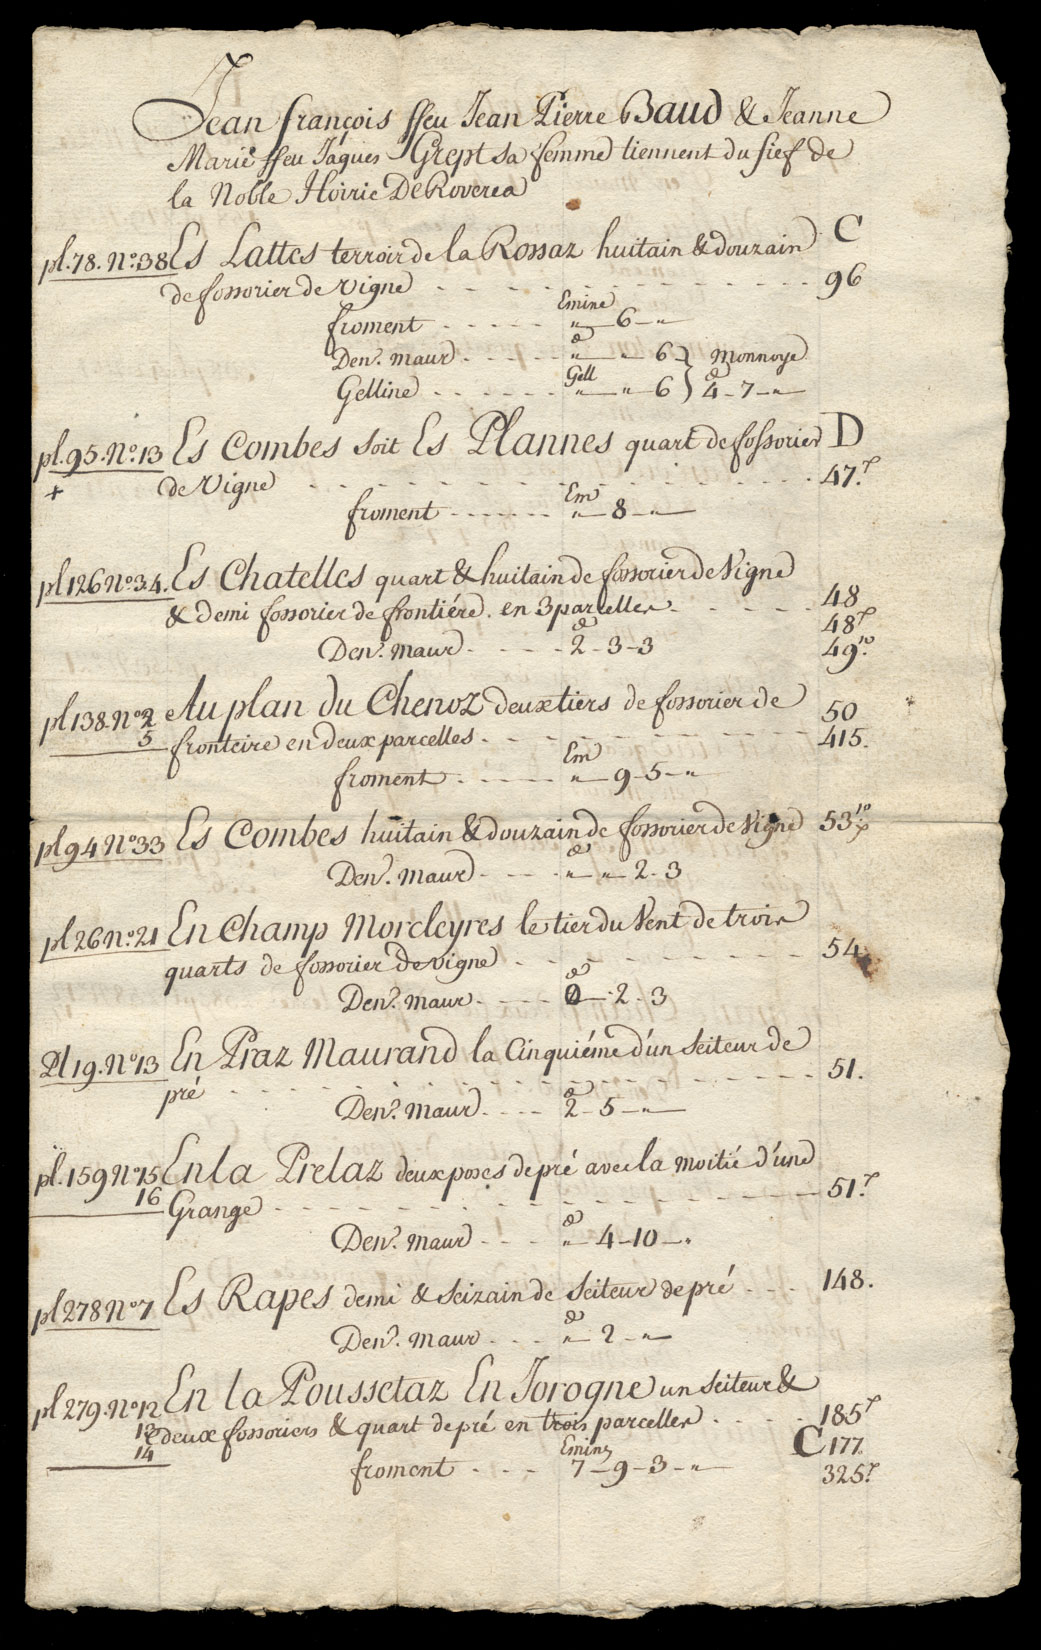 Jean françois ffeu Jean Pierre Baud & Jeanne
Marie ffeu Jâques Grept sa femme tiennent du fief de
la Noble Hoirie De Roverea
pl. 78. No. 38 Es Lattes terroir de la Rossaz huitain & douzain C
de fossorier de vigne 96
Emine
froment „ 6 „
Den. maur „ „ 6 } Monnoye
Gell
Gelline „ „ 6 } 4 - 7 - „
pl. 95. No. 13 Es Combes soit Es Plannes quart de fossorier D
+ de Vigne 47.
Em
froment „ 8 „
pl 126 No 34. Es Chatelles quart & huitain de fossorier de Vigne
& demi fossorier de frontiére. en 3 parcelles 48
48
Den. maur 2 - 3 - 3 49.
pl 138. No 2 Au plan du Chenoz deux tiers de fossorier de 50
5 fronteire en deux parcelles 415.
Em
froment „ 9 - 5 - „
pl 94 No 33 Es Combes huitain & douzain de fossorier de Vigne 53
Den. maur „ „ 2 - 3
pl 26 No. 21 En Champ Morcleyres le tier du Vent de trois
quarts de fossorier de vigne 54
Den. maur 0 - 2 - 3
Pl 19. No 13 En Praz Maurand la Cinquiéme d'un seiteur de
pré 51.
Den. maur 2 - 5 - „
pl. 159 No 15 En la Prelaz deux poses de pré avec la moitié d'une
16 Grange 51.
Den. maur „ 4 - 10 - „
pl 278 No 7 Es Rapes demi & seizain de seiteur de pré 148.
Den. maur „ 2 - „
pl 279. No 12 En la Poussetaz En Jorogne un seiteur &
13 deux fossoriers & quart de pré en trois parcelles 185
14 Emines C 177
froment 7 - 9 - 3 - „ 325.